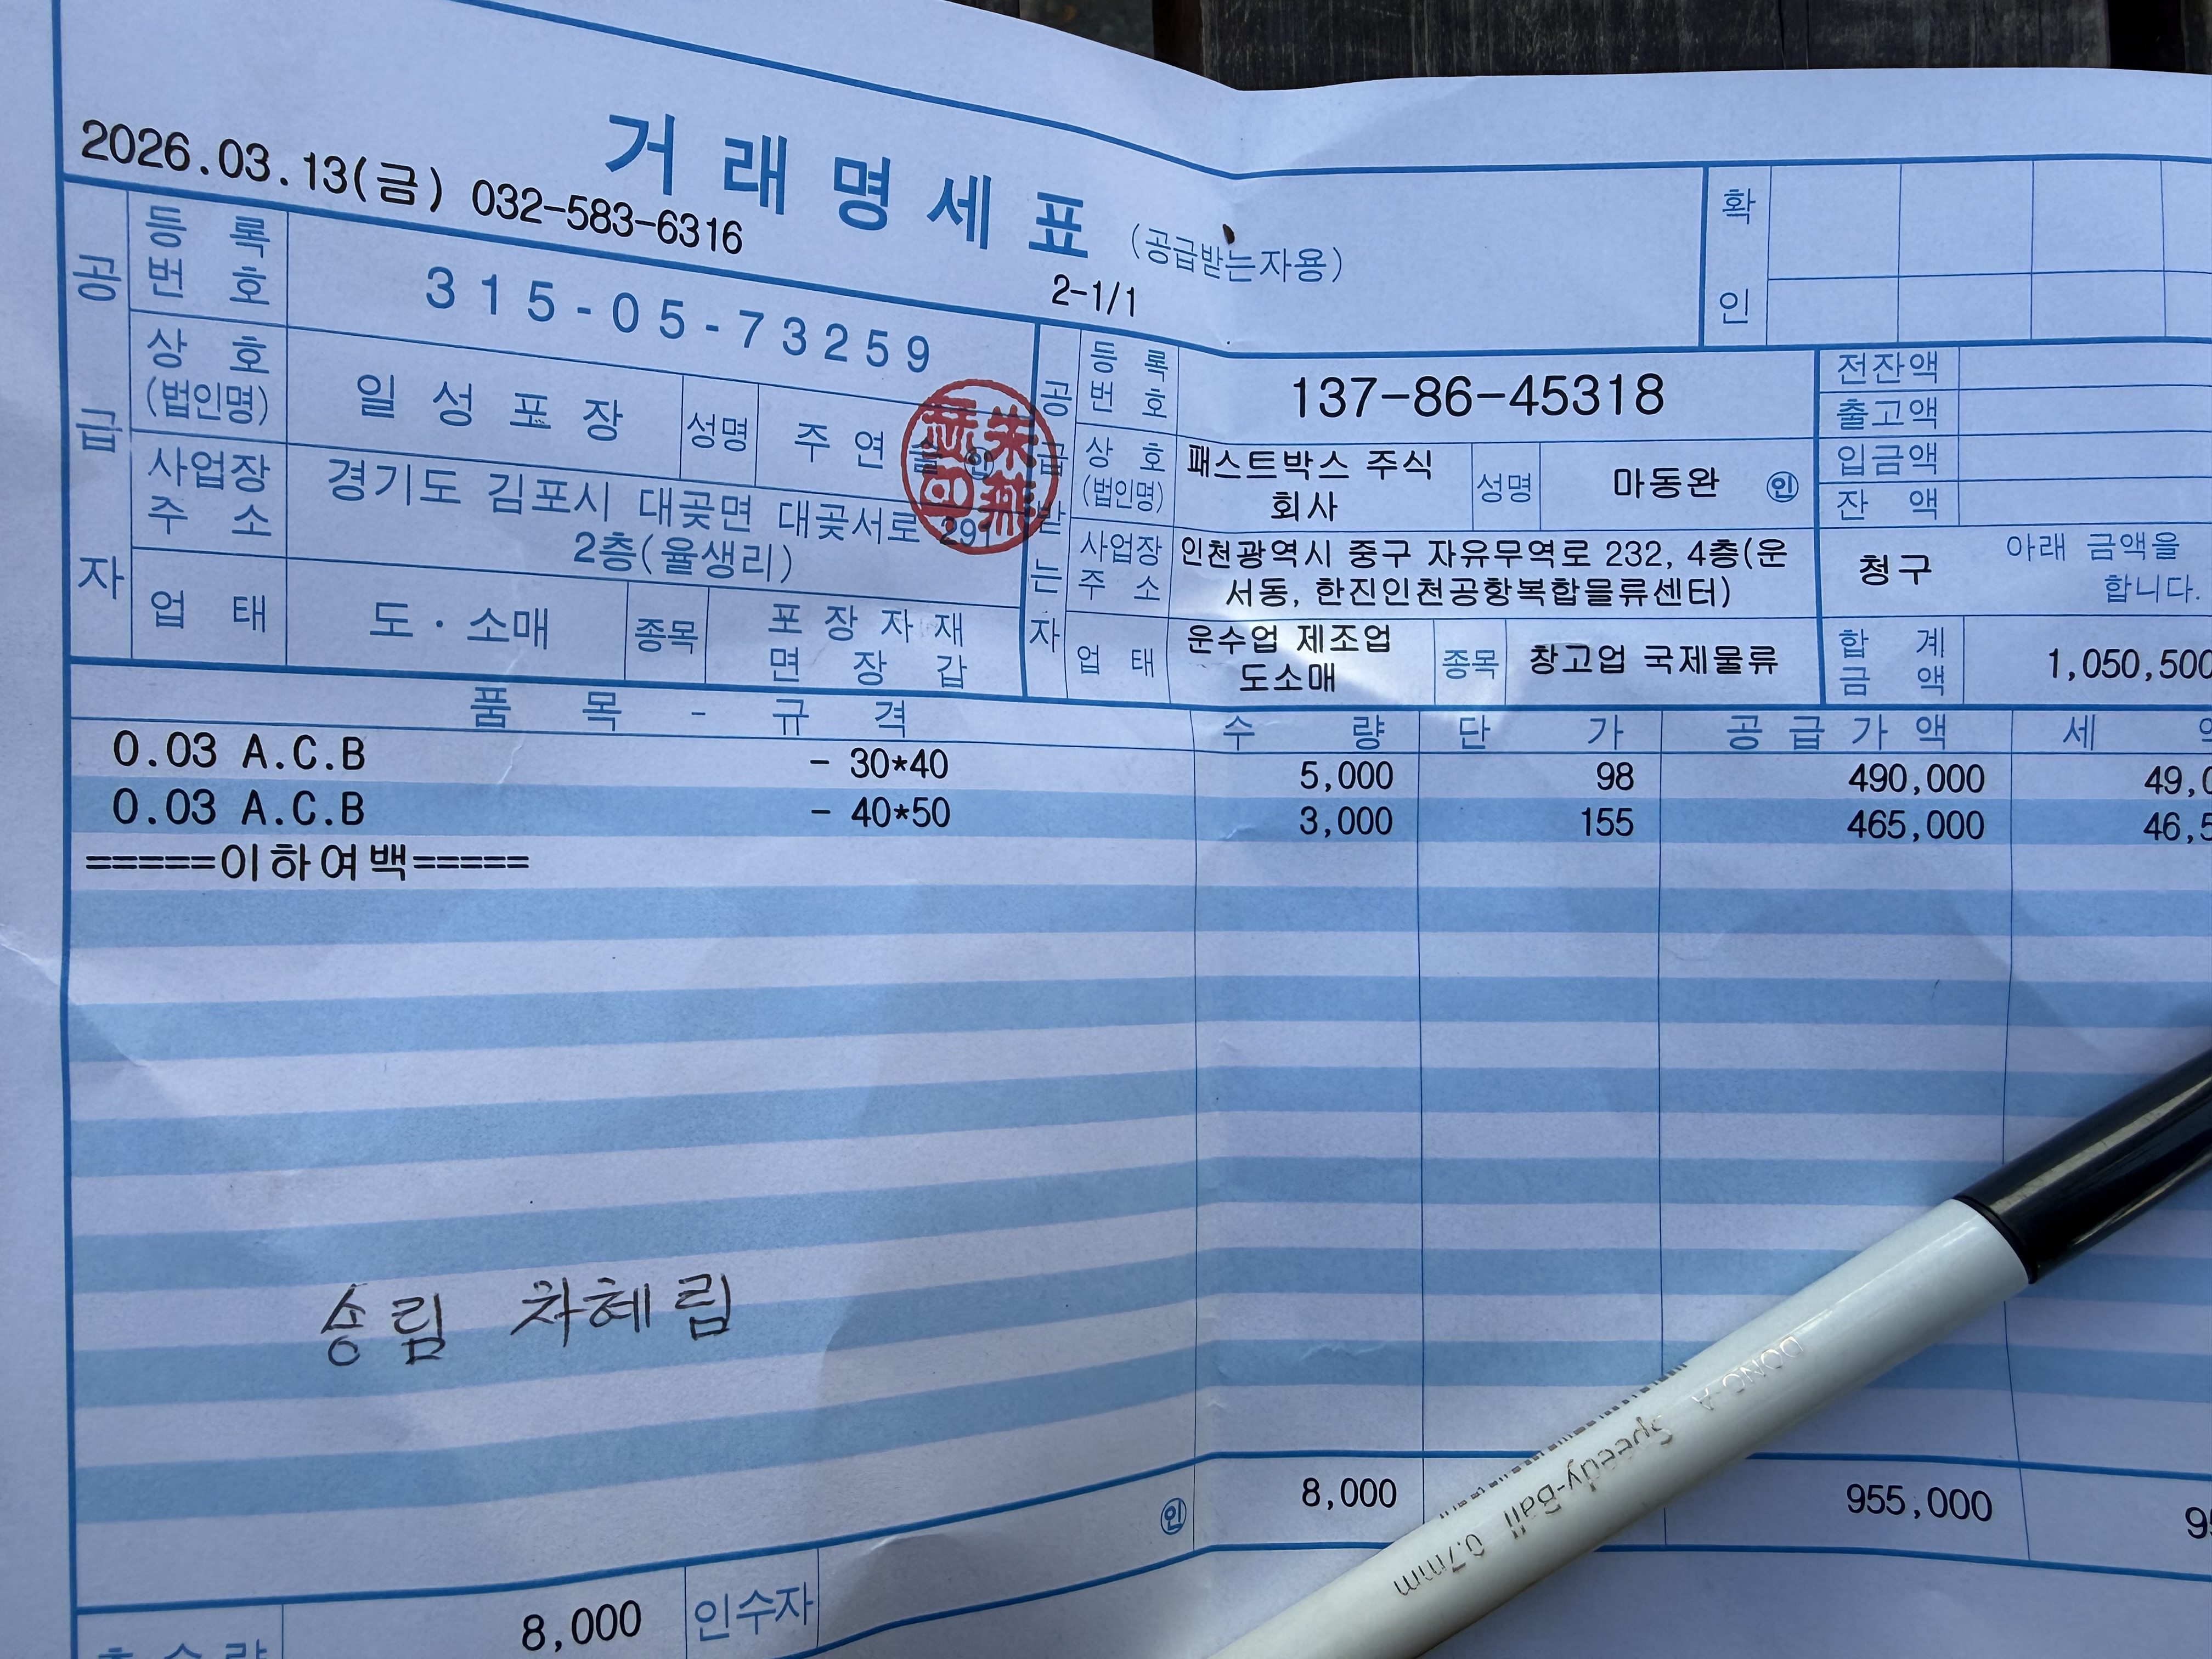 거래명세표 (공급받는자용)
2026.03.13(금) 032-583-6316
2-1/1
확인
공급자
등록번호 315-05-73259
상호(법인명) 일성포장 성명 주연
사업장주소 경기도 김포시 대곶면 대곶서로 291
2층(율생리)
업태 도·소매 종목 포장자재
면장갑
공급받는자
등록번호 137-86-45318
상호(법인명) 패스트박스 주식
회사 성명 마동완 ㊞
사업장주소 인천광역시 중구 자유무역로 232, 4층(운
서동, 한진인천공항복합물류센터)
업태 운수업 제조업
도소매 종목 창고업 국제물류
전잔액
출고액
입금액
잔액
청구 아래 금액을
합니다.
합계금액 1,050,500
품목 - 규격 수량 단가 공급가액 세
0.03 A.C.B - 30*40 5,000 98 490,000 49,0
0.03 A.C.B - 40*50 3,000 155 465,000 46,5
=====이하여백=====
송림 차혜림
㊞ 8,000 955,000 95
8,000 인수자
DONG-A Speedy-Ball 0.7mm